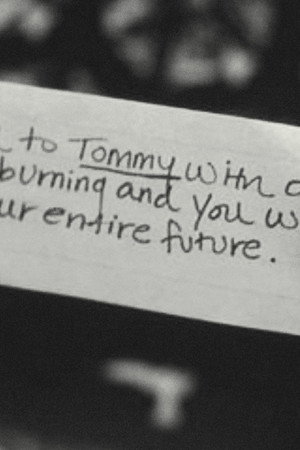 to Tommy with
burning and you
entire future.